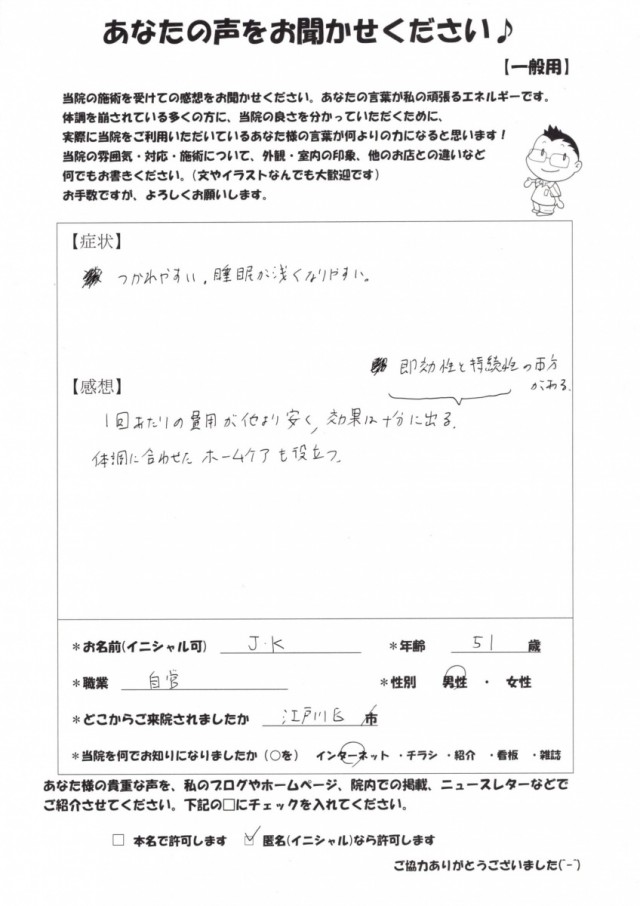 あなたの声をお聞かせください♪
【一般用】
当院の施術を受けての感想をお聞かせください。あなたの言葉が私の頑張るエネルギーです。
体調を崩されている多くの方に、当院の良さを分かっていただくために、
実際に当院をご利用いただいているあなた様の言葉が何よりの力になると思います！
当院の雰囲気・対応・施術について、外観・室内の印象、他のお店との違いなど
何でもお書きください。(文やイラストなんでも大歓迎です)
お手数ですが、よろしくお願いします。
【症状】
つかれやすい，睡眠が浅くなりやすい。
即効性と持続性の両方
がある.
【感想】
1回あたりの費用が他より安く，効果は十分に出る.
体調に合わせた ホームケアも役立つ.
＊お名前(イニシャル可) J.K ＊年齢 51 歳
＊職業 自営 ＊性別 男性 ・ 女性
＊どこからご来院されましたか 江戸川区 市
＊当院を何でお知りになりましたか（○を） インターネット ・チラシ ・紹介 ・看板 ・雑誌
あなた様の貴重な声を、私のブログやホームページ、院内での掲載、ニュースレターなどで
ご紹介させてください。下記の□にチェックを入れてください。
□ 本名で許可します ☑ 匿名(イニシャル)なら許可します
ご協力ありがとうございました(ˉ-ˉ)